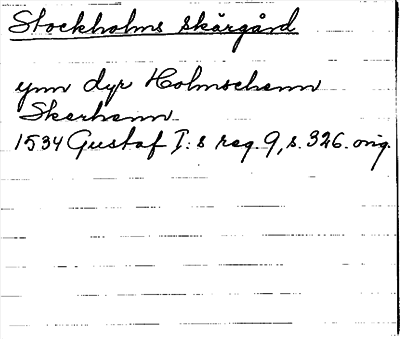 Stockholms skärgård
ynn dyr Holmschenn
Skerhenn
1534 Gustaf I:s reg. 9, s. 326. orig.